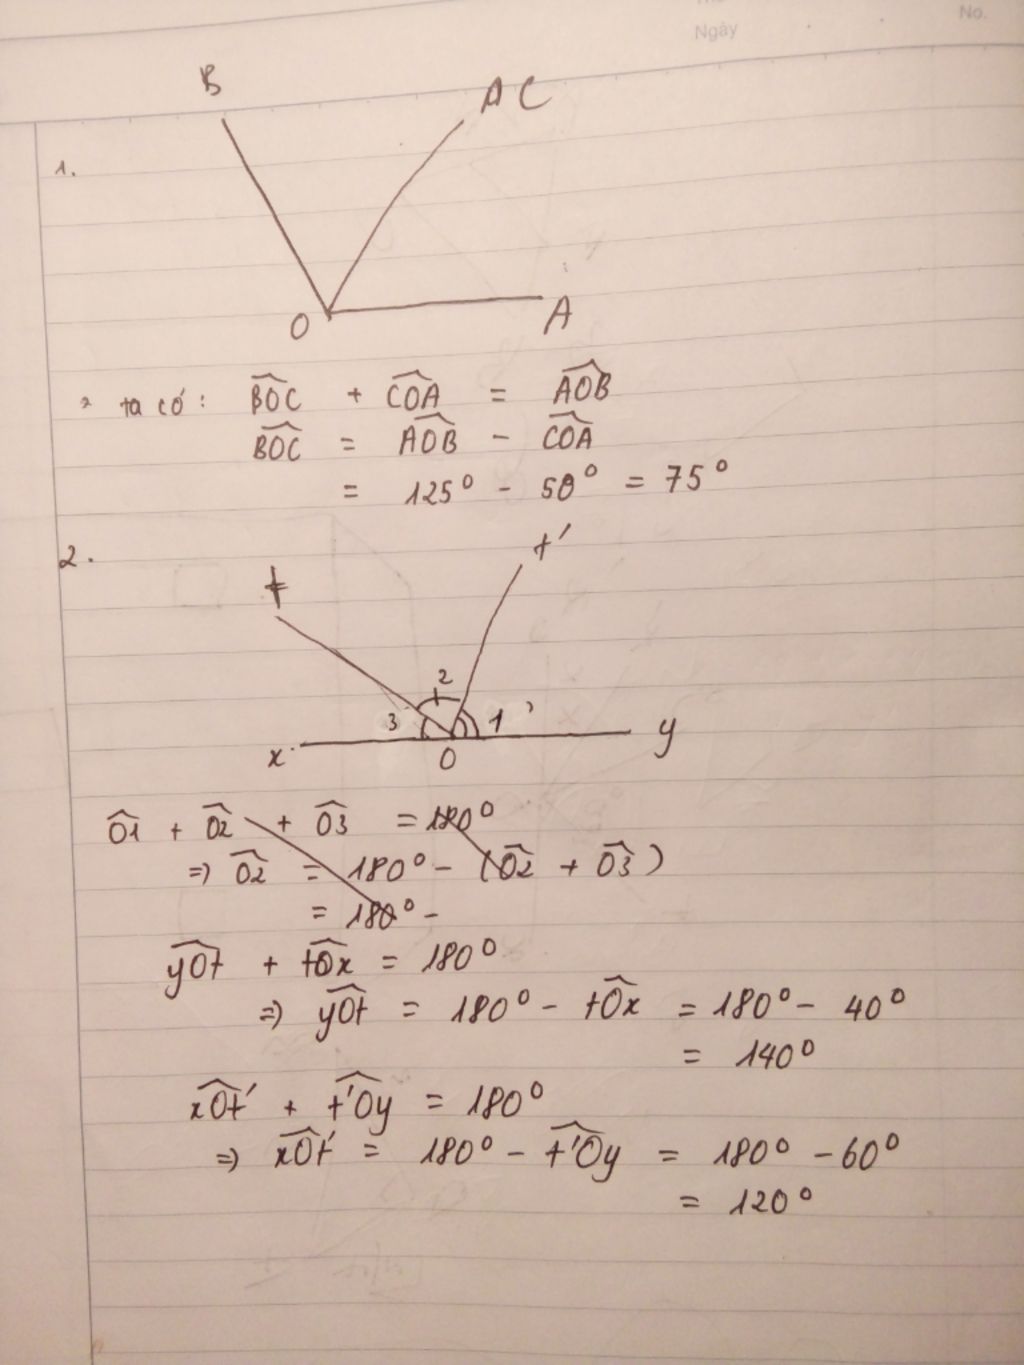 Ngày
No.
B
A C
1.
O
A
ta có: BOC + COA = AOB
BOC = AOB - COA
= 125° - 50° = 75°
2.
t'
t
2
3
1
x
O
y
O1 + O2 + O3 = 180°
=> O2 = 180° - (O2 + O3)
= 180° -
yOt + tOx = 180°
=> yOt = 180° - tOx = 180° - 40°
= 140°
xOt' + t'Oy = 180°
=> xOt' = 180° - t'Oy = 180° - 60°
= 120°